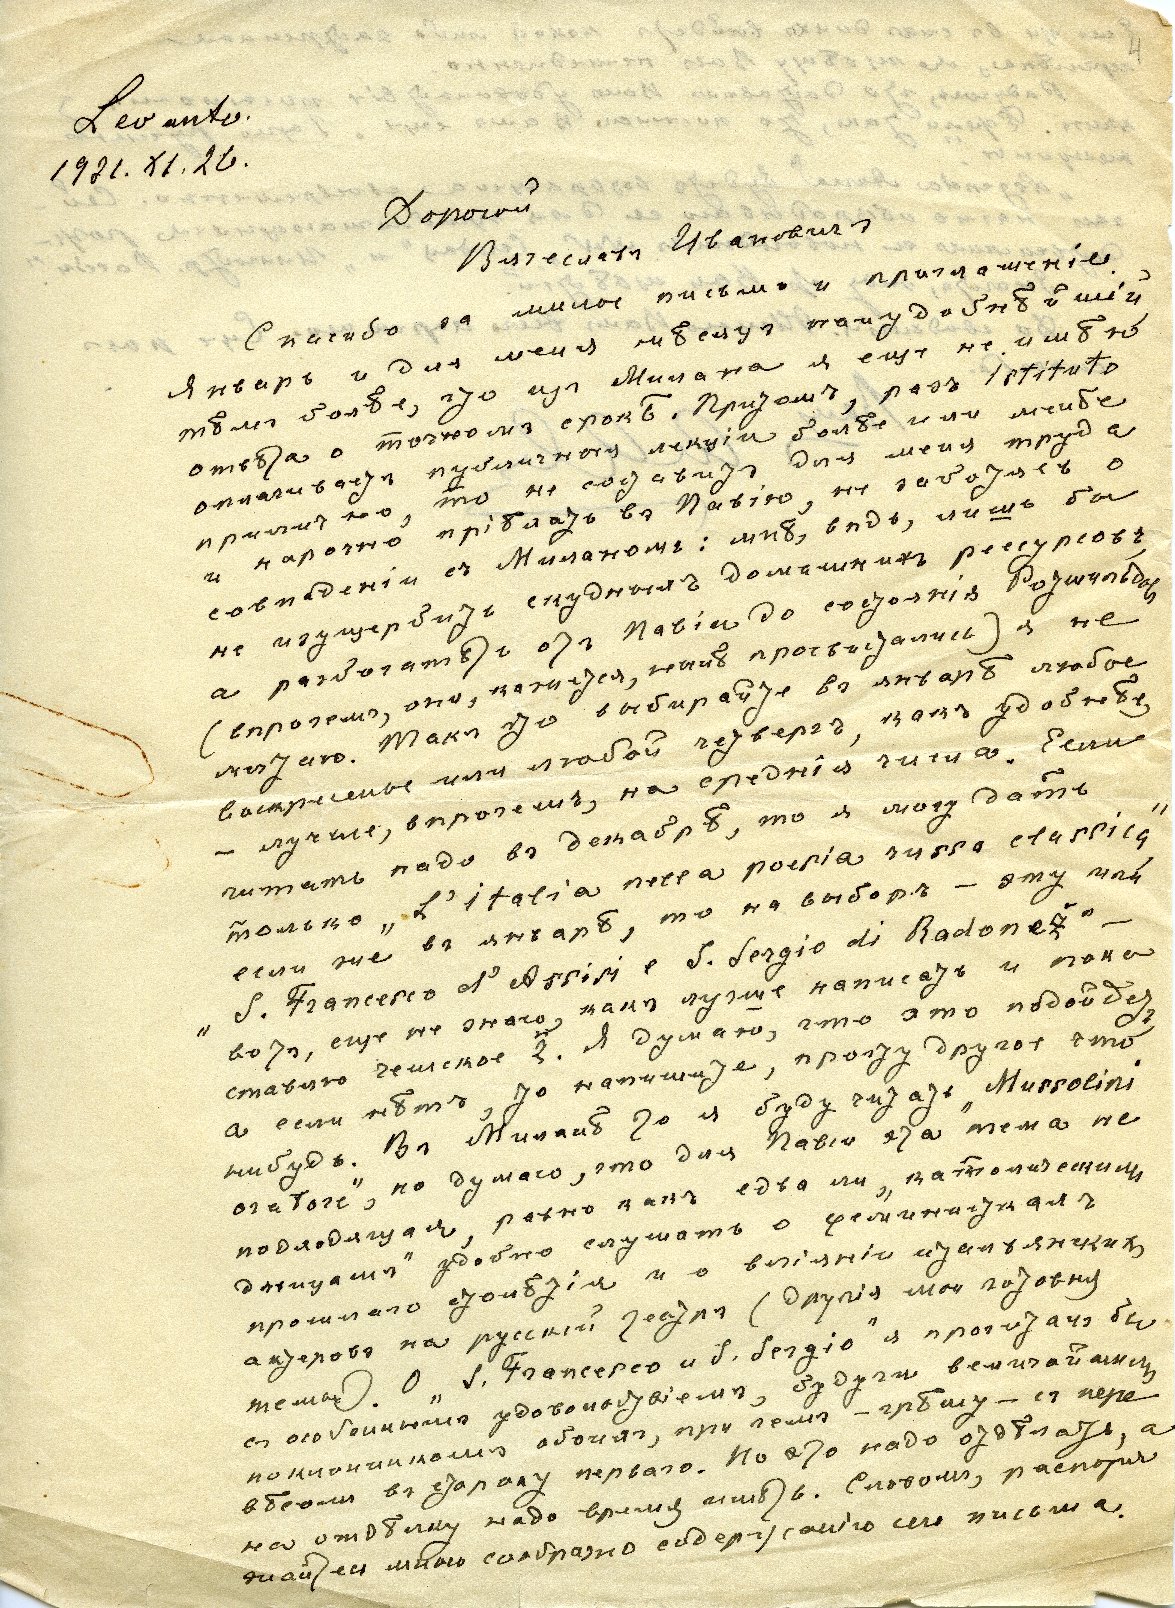 Levanto.
1931. XI. 26.
Дорогой
Вячеславъ Ивановичъ
Спасибо за милое письмо и приглашеніе.
Январь и для меня мѣсяцъ наиудобнѣйшій
тѣмъ болѣе, что изъ Милана я еще не имѣю
отвѣта о точномъ срокѣ. Притомъ, разъ Istituto
оплачиваетъ публичныя лекціи болѣе или менѣе
прилично, то не составитъ для меня труда
и нарочно пріѣхать въ Павію, не заботясь о
совпаденіи съ Миланомъ: мнѣ, вѣдь, лишь бы
не изущербить скудныхъ домашнихъ рессурсовъ,
а разбогатѣть отъ Павіи до состоянія Ротшильдовъ
(впрочемъ, они, кажется, нынѣ просвистались) я не
мечтаю. Такъ что выбирайте въ январѣ любое
воскресенье или любой четвергъ, какъ удобнѣе,
– лучше, впрочемъ, на среднія числа. Если
читать надо въ декабрѣ, то я могу дать
только „L'italia nella poesia russa classica"
если же въ январѣ, то на выборъ – эту или
„S. Francesco d'Assisi e S. Sergio di Radonež" –
вотъ, еще не знаю, какъ лучше написать и пока
ставлю чешское ž. Я думаю, что это подойдетъ,
а если нѣтъ, то напишите, прочту другое что
нибудь. Въ Миланѣ то я буду читать „Mussolini
oratore", но думаю, что для Павіи эта тема не
подходящая, равно какъ едва ли „католическимъ
дѣвицамъ" удобно слушать о феминисткахъ
прошлаго столѣтія и о вліяніи итальянскихъ
актеровъ на русскій театръ (другія мои готовыя
темы). О „S. Francesco и S. Sergio" я прочиталъ бы
съ особеннымъ удовольствіемъ, будучи величайшимъ
поклонникомъ обоихъ, при чемъ – грѣшу – съ пере
вѣсомъ въ сторону перваго. Но это надо отдѣлать, а
на отдѣлку надо время имѣть. Словомъ, распоря
жайтесь мною сообразно содержанію сего письма.